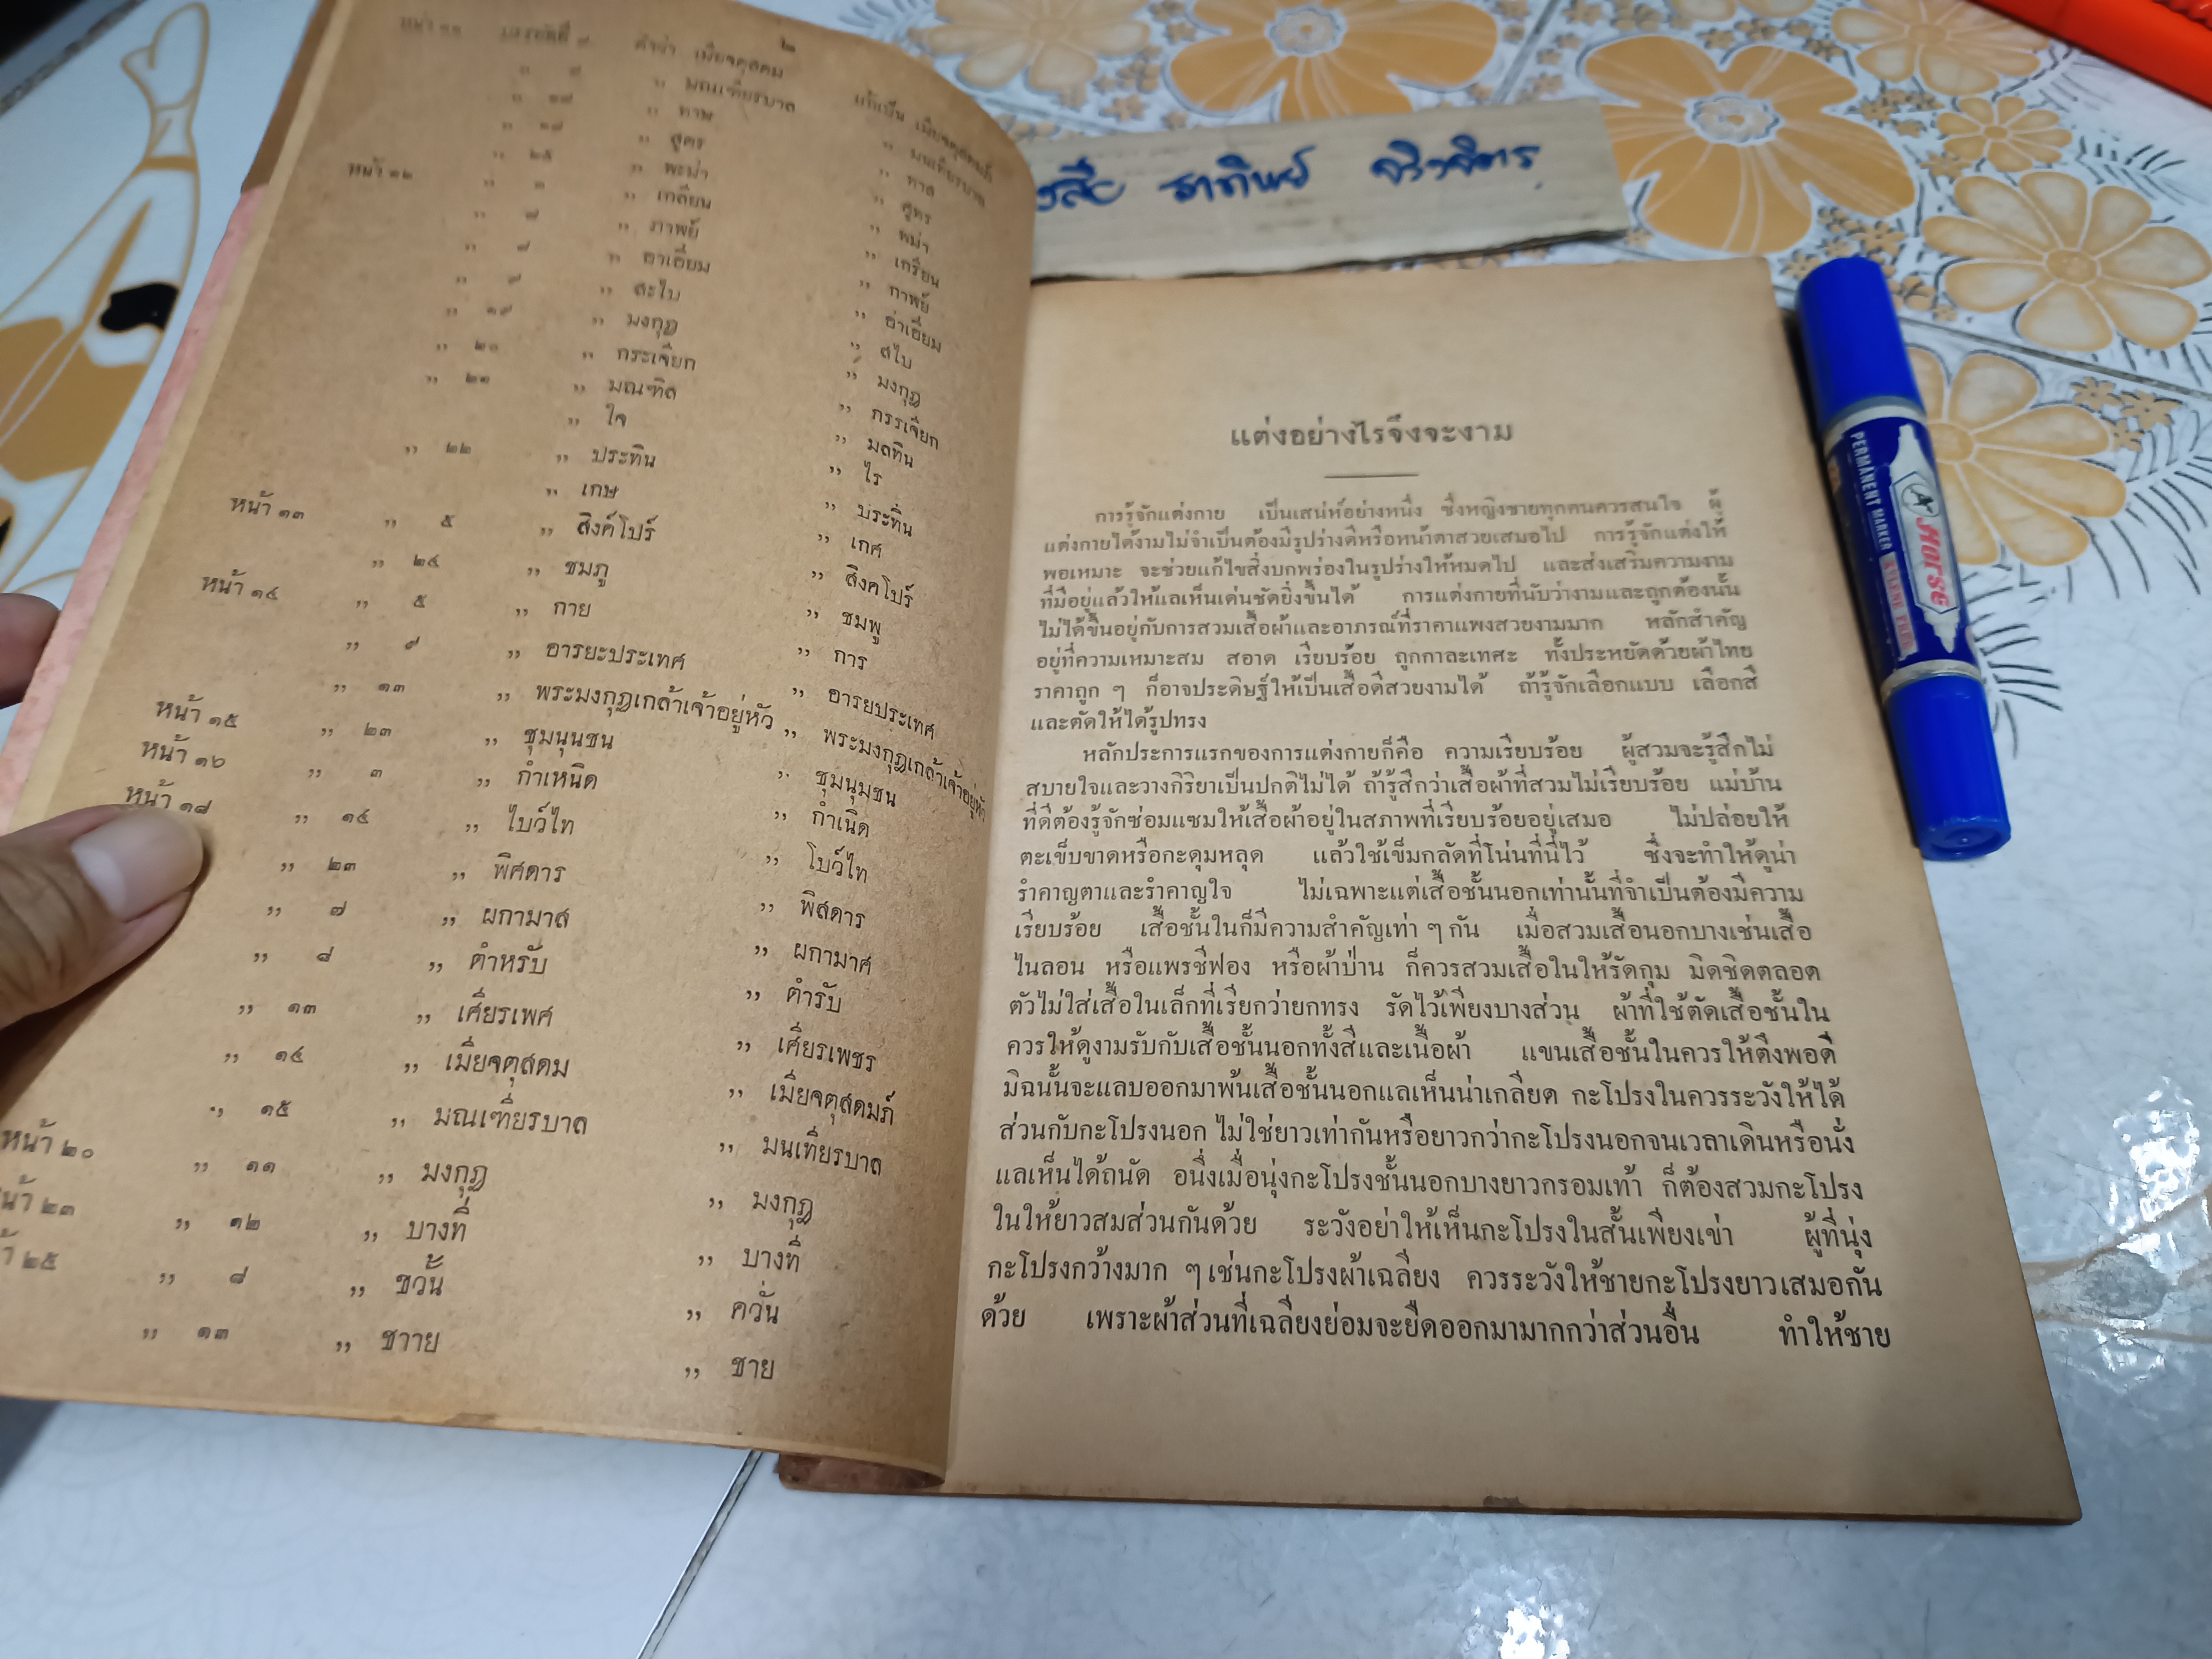 ๒
หน้า ๑๑ บรรทัดที่ ๘ คำว่า เมียจตุสดม แก้เป็น เมียจตุสดมภ์
,, ๘ ,, มณเฑียรบาล ,, มนเทียรบาล
,, ๑๘ ,, หาษ ,, หาล
,, ๑๘ ,, สูตร ,, สูทร
,, ๒๕ ,, พะม่า ,, พม่า
หน้า ๑๒ ,, ๓ ,, เกลียน ,, เกรียน
,, ๘ ,, ภาพย์ ,, กาพย์
,, ๘ ,, อาเอี่ยม ,, อ่าเอี่ยม
,, ๙ ,, สะไบ ,, สไบ
,, ๑๙ ,, มงกุฎ ,, มงกุฎ
,, ๒๐ ,, กระเจียก ,, กรรเจียก
,, ๒๑ ,, มณฑิล ,, มลทิน
,, ใจ ,, ไร
,, ๒๒ ,, ประทิน ,, ประทิ่น
,, เกษ ,, เกศ
หน้า ๑๓ ,, ๕ ,, สิงค์โปร์ ,, สิงคโปร์
,, ๒๔ ,, ชมภู ,, ชมพู
หน้า ๑๔ ,, ๕ ,, กาย ,, การ
,, ๙ ,, อารยะประเทศ ,, อารยประเทศ
,, ๑๓ ,, พระมงกุฎเกล้าเจ้าอยู่หัว ,, พระมงกุฎเกล้าเจ้าอยู่หัว
หน้า ๑๕ ,, ๒๓ ,, ชุมนุนชน ,, ชุมนุมชน
หน้า ๑๖ ,, ๓ ,, กำเหนิด ,, กำเนิด
หน้า ๑๘ ,, ๑๔ ,, ไบว์ไท ,, โบว์ไท
,, ๒๓ ,, พิศดาร ,, พิสดาร
,, ๗ ,, ผกามาส ,, ผกามาศ
,, ๘ ,, ตำหรับ ,, ตำรับ
,, ๑๓ ,, เศียรเพศ ,, เศียรเพชร
,, ๑๔ ,, เมียจตุสดม ,, เมียจตุสดมภ์
,, ๑๕ ,, มณเฑียรบาล ,, มนเทียรบาล
หน้า ๒๐ ,, ๑๑ ,, มงกุฎ ,, มงกุฎ
น้า ๒๓ ,, ๑๒ ,, บางที่ ,, บางที่
า ๒๕ ,, ๘ ,, ขวั้น ,, ควั่น
,, ๑๓ ,, ชาาย ,, ชาย
งสือ ธาทิพย์ จิรวจิตร
แต่งอย่างไรจึงจะงาม
การรู้จักแต่งกาย เป็นเสน่ห์อย่างหนึ่ง ซึ่งหญิงชายทุกคนควรสนใจ ผู้
แต่งกายได้งามไม่จำเป็นต้องมีรูปร่างดีหรือหน้าตาสวยเสมอไป การรู้จักแต่งให้
พอเหมาะ จะช่วยแก้ไขสิ่งบกพร่องในรูปร่างให้หมดไป และส่งเสริมความงาม
ที่มีอยู่แล้วให้แลเห็นเด่นชัดยิ่งขึ้นได้ การแต่งกายที่นับว่างามและถูกต้องนั้น
ไม่ได้ขึ้นอยู่กับการสวมเสื้อผ้าและอาภรณ์ที่ราคาแพงสวยงามมาก หลักสำคัญ
อยู่ที่ความเหมาะสม สอาด เรียบร้อย ถูกกาละเทศะ ทั้งประหยัดด้วยผ้าไทย
ราคาถูก ๆ ก็อาจประดิษฐ์ให้เป็นเสื้อดีสวยงามได้ ถ้ารู้จักเลือกแบบ เลือกสี
และตัดให้ได้รูปทรง
หลักประการแรกของการแต่งกายก็คือ ความเรียบร้อย ผู้สวมจะรู้สึกไม่
สบายใจและวางกิริยาเป็นปกติไม่ได้ ถ้ารู้สึกว่าเสื้อผ้าที่สวมไม่เรียบร้อย แม่บ้าน
ที่ดีต้องรู้จักซ่อมแซมให้เสื้อผ้าอยู่ในสภาพที่เรียบร้อยอยู่เสมอ ไม่ปล่อยให้
ตะเข็บขาดหรือกะดุมหลุด แล้วใช้เข็มกลัดที่โน่นที่นี่ไว้ ซึ่งจะทำให้ดูน่า
รำคาญตาและรำคาญใจ ไม่เฉพาะแต่เสื้อชั้นนอกเท่านั้นที่จำเป็นต้องมีความ
เรียบร้อย เสื้อชั้นในก็มีความสำคัญเท่า ๆ กัน เมื่อสวมเสื้อนอกบางเช่นเสื้อ
ไนลอน หรือแพรชีฟอง หรือผ้าป่าน ก็ควรสวมเสื้อในให้รัดกุม มิดชิดตลอด
ตัวไม่ใส่เสื้อในเล็กที่เรียกว่ายกทรง รัดไว้เพียงบางส่วน ผ้าที่ใช้ตัดเสื้อชั้นใน
ควรให้ดูงามรับกับเสื้อชั้นนอกทั้งสีและเนื้อผ้า แขนเสื้อชั้นในควรให้ตึงพอดี
มิฉนั้นจะแลบออกมาพ้นเสื้อชั้นนอกแลเห็นน่าเกลียด กะโปรงในควรระวังให้ได้
ส่วนกับกะโปรงนอก ไม่ใช่ยาวเท่ากันหรือยาวกว่ากะโปรงนอกจนเวลาเดินหรือนั่ง
แลเห็นได้ถนัด อนึ่งเมื่อนุ่งกะโปรงชั้นนอกบางยาวกรอมเท้า ก็ต้องสวมกะโปรง
ในให้ยาวสมส่วนกันด้วย ระวังอย่าให้เห็นกะโปรงในสั้นเพียงเข่า ผู้ที่นุ่ง
กะโปรงกว้างมาก ๆ เช่นกะโปรงผ้าเฉลียง ควรระวังให้ชายกะโปรงยาวเสมอกัน
ด้วย เพราะผ้าส่วนที่เฉลียงย่อมจะยืดออกมามากกว่าส่วนอื่น ทำให้ชาย
Horse
PERMANENT MARKER
XYLENE FREE